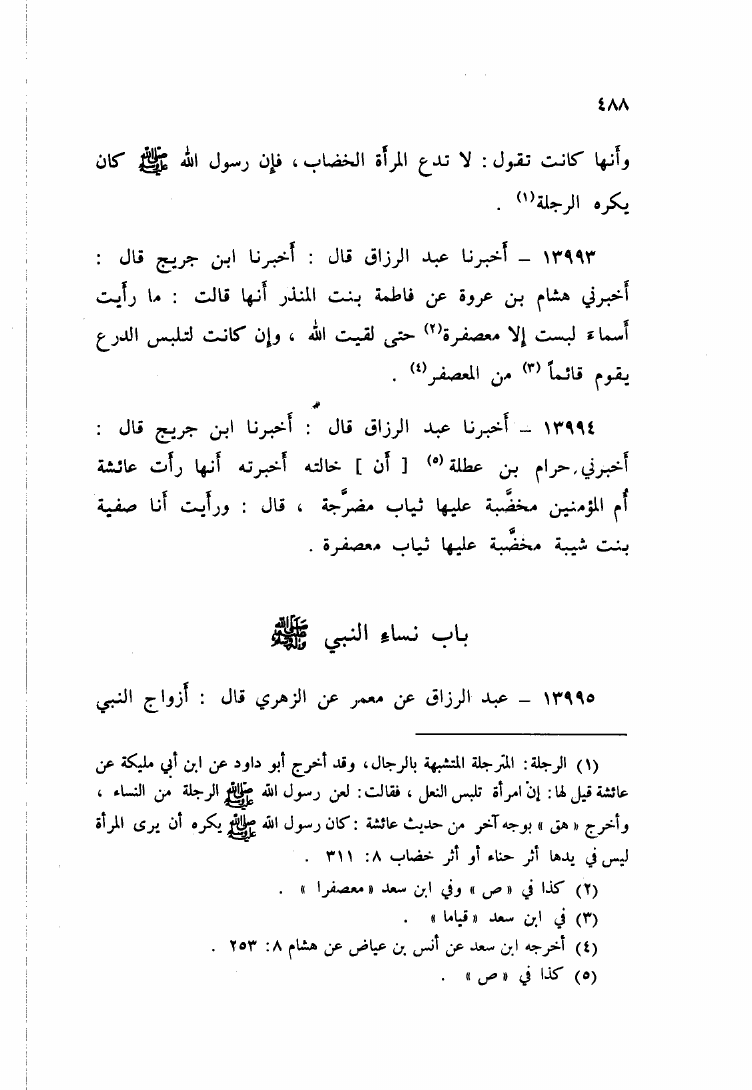 ٤٨٨
وأنها كانت تقول : لا تدع المرأة الخضاب ، فإن رسول الله ﷺ كان
يكره الرجلة(١) .
١٣٩٩٣ – أخبرنا عبد الرزاق قال : أخبرنا ابن جريج قال :
أخبرني هشام بن عروة عن فاطمة بنت المنذر أنها قالت : ما رأيت
أسماءَ لبست إلا معصفرة(٢) حتى لقيت الله ، وإن كانت لتلبس الدرع
يقوم قائماً(٣) من المعصفر(٤) .
١٣٩٩٤ – أخبرنا عبد الرزاق قال : أخبرنا ابن جريج قال :
أخبرني حرام بن عطلة(٥) [ أن ] خالته أخبرته أنها رأت عائشة
أُم المؤمنين مخضَّبة عليها ثياب مضرَّجة ، قال : ورأيت أنا صفية
بنت شيبة مخضَّبة عليها ثياب معصفرة .
باب نساءِ النبي ﷺ
١٣٩٩٥ – عبد الرزاق عن معمر عن الزهري قال : أزواج النبي
(١) الرجلة : المترجلة المتشبهة بالرجال ، وقد أخرج أبو داود عن ابن أبي مليكة عن
عائشة قيل لها : إن امرأة تلبس النعل ، فقالت : لعن رسول الله ﷺ الرجلة من النساء ،
وأخرج « هق » بوجه آخر من حديث عائشة : كان رسول الله ﷺ يكره أن يرى المرأة
ليس في يدها أثر حناء أو أثر خضاب ٨ : ٣١١ .
(٢) كذا في « ص » وفي ابن سعد « معصفرا » .
(٣) في ابن سعد « قياما » .
(٤) أخرجه ابن سعد عن أنس بن عياض عن هشام ٨ : ٢٥٣ .
(٥) كذا في « ص » .